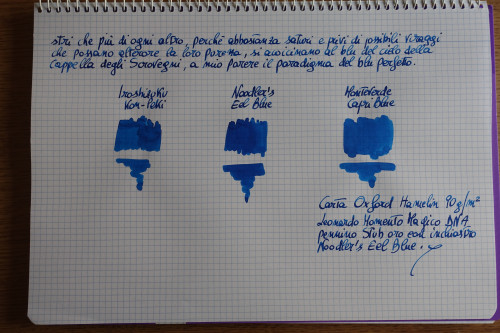 stri che più di ogni altro, perché abbastanza saturi e privi di possibili viraggi
che possano alterare la loro purezza, si avvicinano al blu del cielo della
Cappella degli Scrovegni, a mio parere il paradigma del blu perfetto.
Iroshizuku
Kon-Peki
Noodler's
Eel Blue
Monteverde
Capri Blue
Carta Oxford Hamelin 90 g/m²
Leonardo Momento Magico DNA
pennino Stub oro con inchiostro
Noodler's Eel Blue.